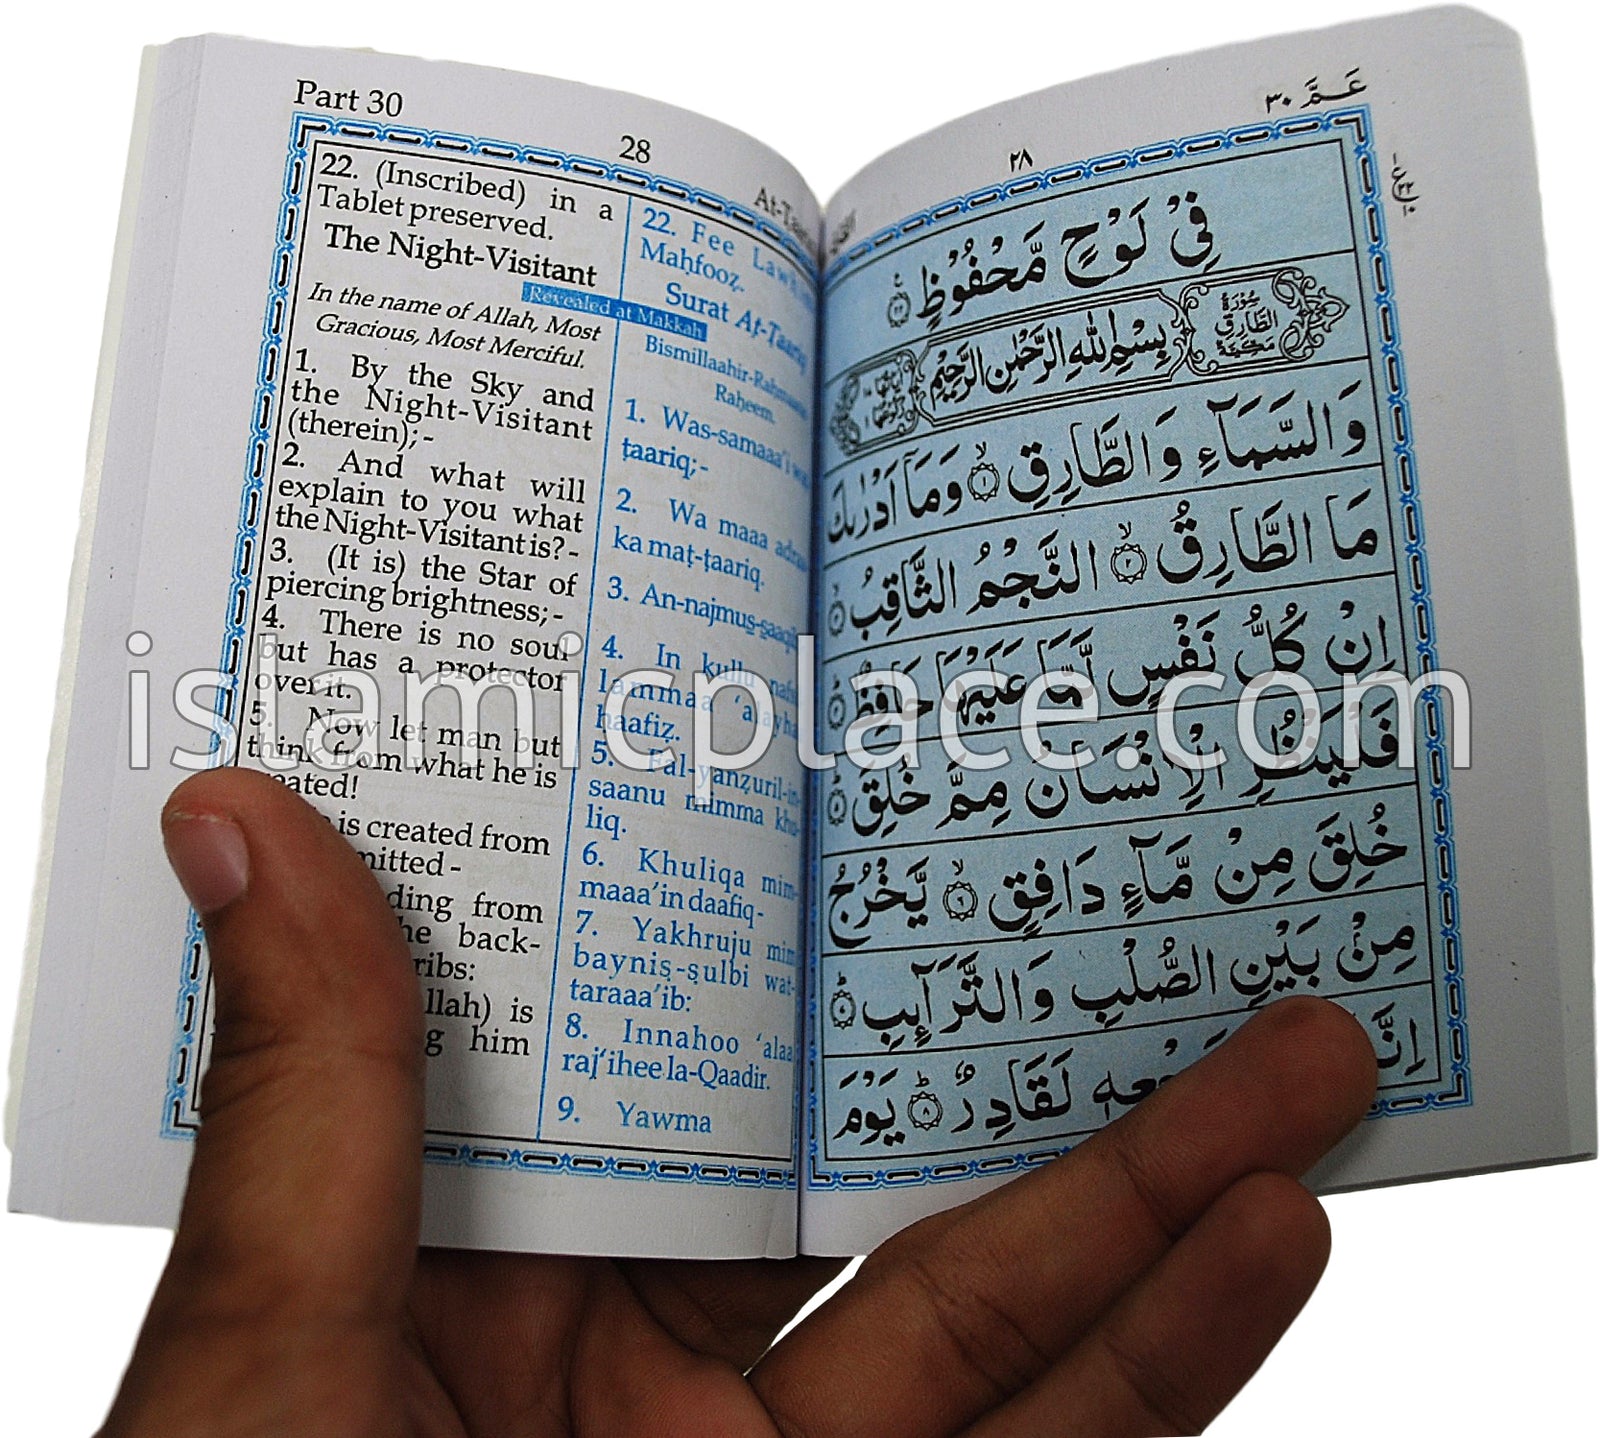 Part 30
28
22. (Inscribed) in a
Tablet preserved.
The Night-Visitant
Revealed at Makkah
In the name of Allah, Most
Gracious, Most Merciful.
1. By the Sky and
the Night-Visitant
(therein);-
2. And what will
explain to you what
the Night-Visitant is? -
3. (It is) the Star of
piercing brightness; -
4. There is no soul
but has a protector
over it.
5. Now let man but
think from what he is
is created from
ding from
back-
ribs:
is
him
22. Fee
Maḥfooẓ.
Surat
Bismillaahir-
Raḥeem.
1. Was-samaaa'i
ṭaariq;-
2. Wa maaa
ka maṭ-ṭaariq.
3. An-najmuṣ-
4. In kullu
lammaa
haafiẓ.
5. Fal-yanẓuril-in-
saanu mimma
liq.
6. Khuliqa mim-
maaa'in daafiq-
7. Yakhruju
bayniṣ-ṣulbi wat-
taraaa'ib:
8. Innahoo
raj'ihee la-Qaadir.
9. Yawma
عَـمَّ ٣٠
٢٨
فِيْ لَوْحٍ مَّحْفُوْظٍ ٢٢
سُوْرَةُ الطَّارِقِ مَكِّيَّةٌ
بِسْمِ اللهِ الرَّحْمٰنِ الرَّحِيْمِ
وَالسَّمَآءِ وَالطَّارِقِ ١ وَمَآ اَدْرٰىكَ
مَا الطَّارِقُ ٢ النَّجْمُ الثَّاقِبُ ٣
اِنْ كُلُّ نَفْسٍ لَّمَّا عَلَيْهَا حَافِظٌ ٤
فَلْيَنْظُرِ الْاِنْسَانُ مِمَّ خُلِقَ ٥
خُلِقَ مِنْ مَّآءٍ دَافِقٍ ٦ يَّخْرُجُ
مِنْۢ بَيْنِ الصُّلْبِ وَالتَّرَآئِبِ ٧
لَقَادِرٌ ٨ يَوْمَ
islamicplace.com